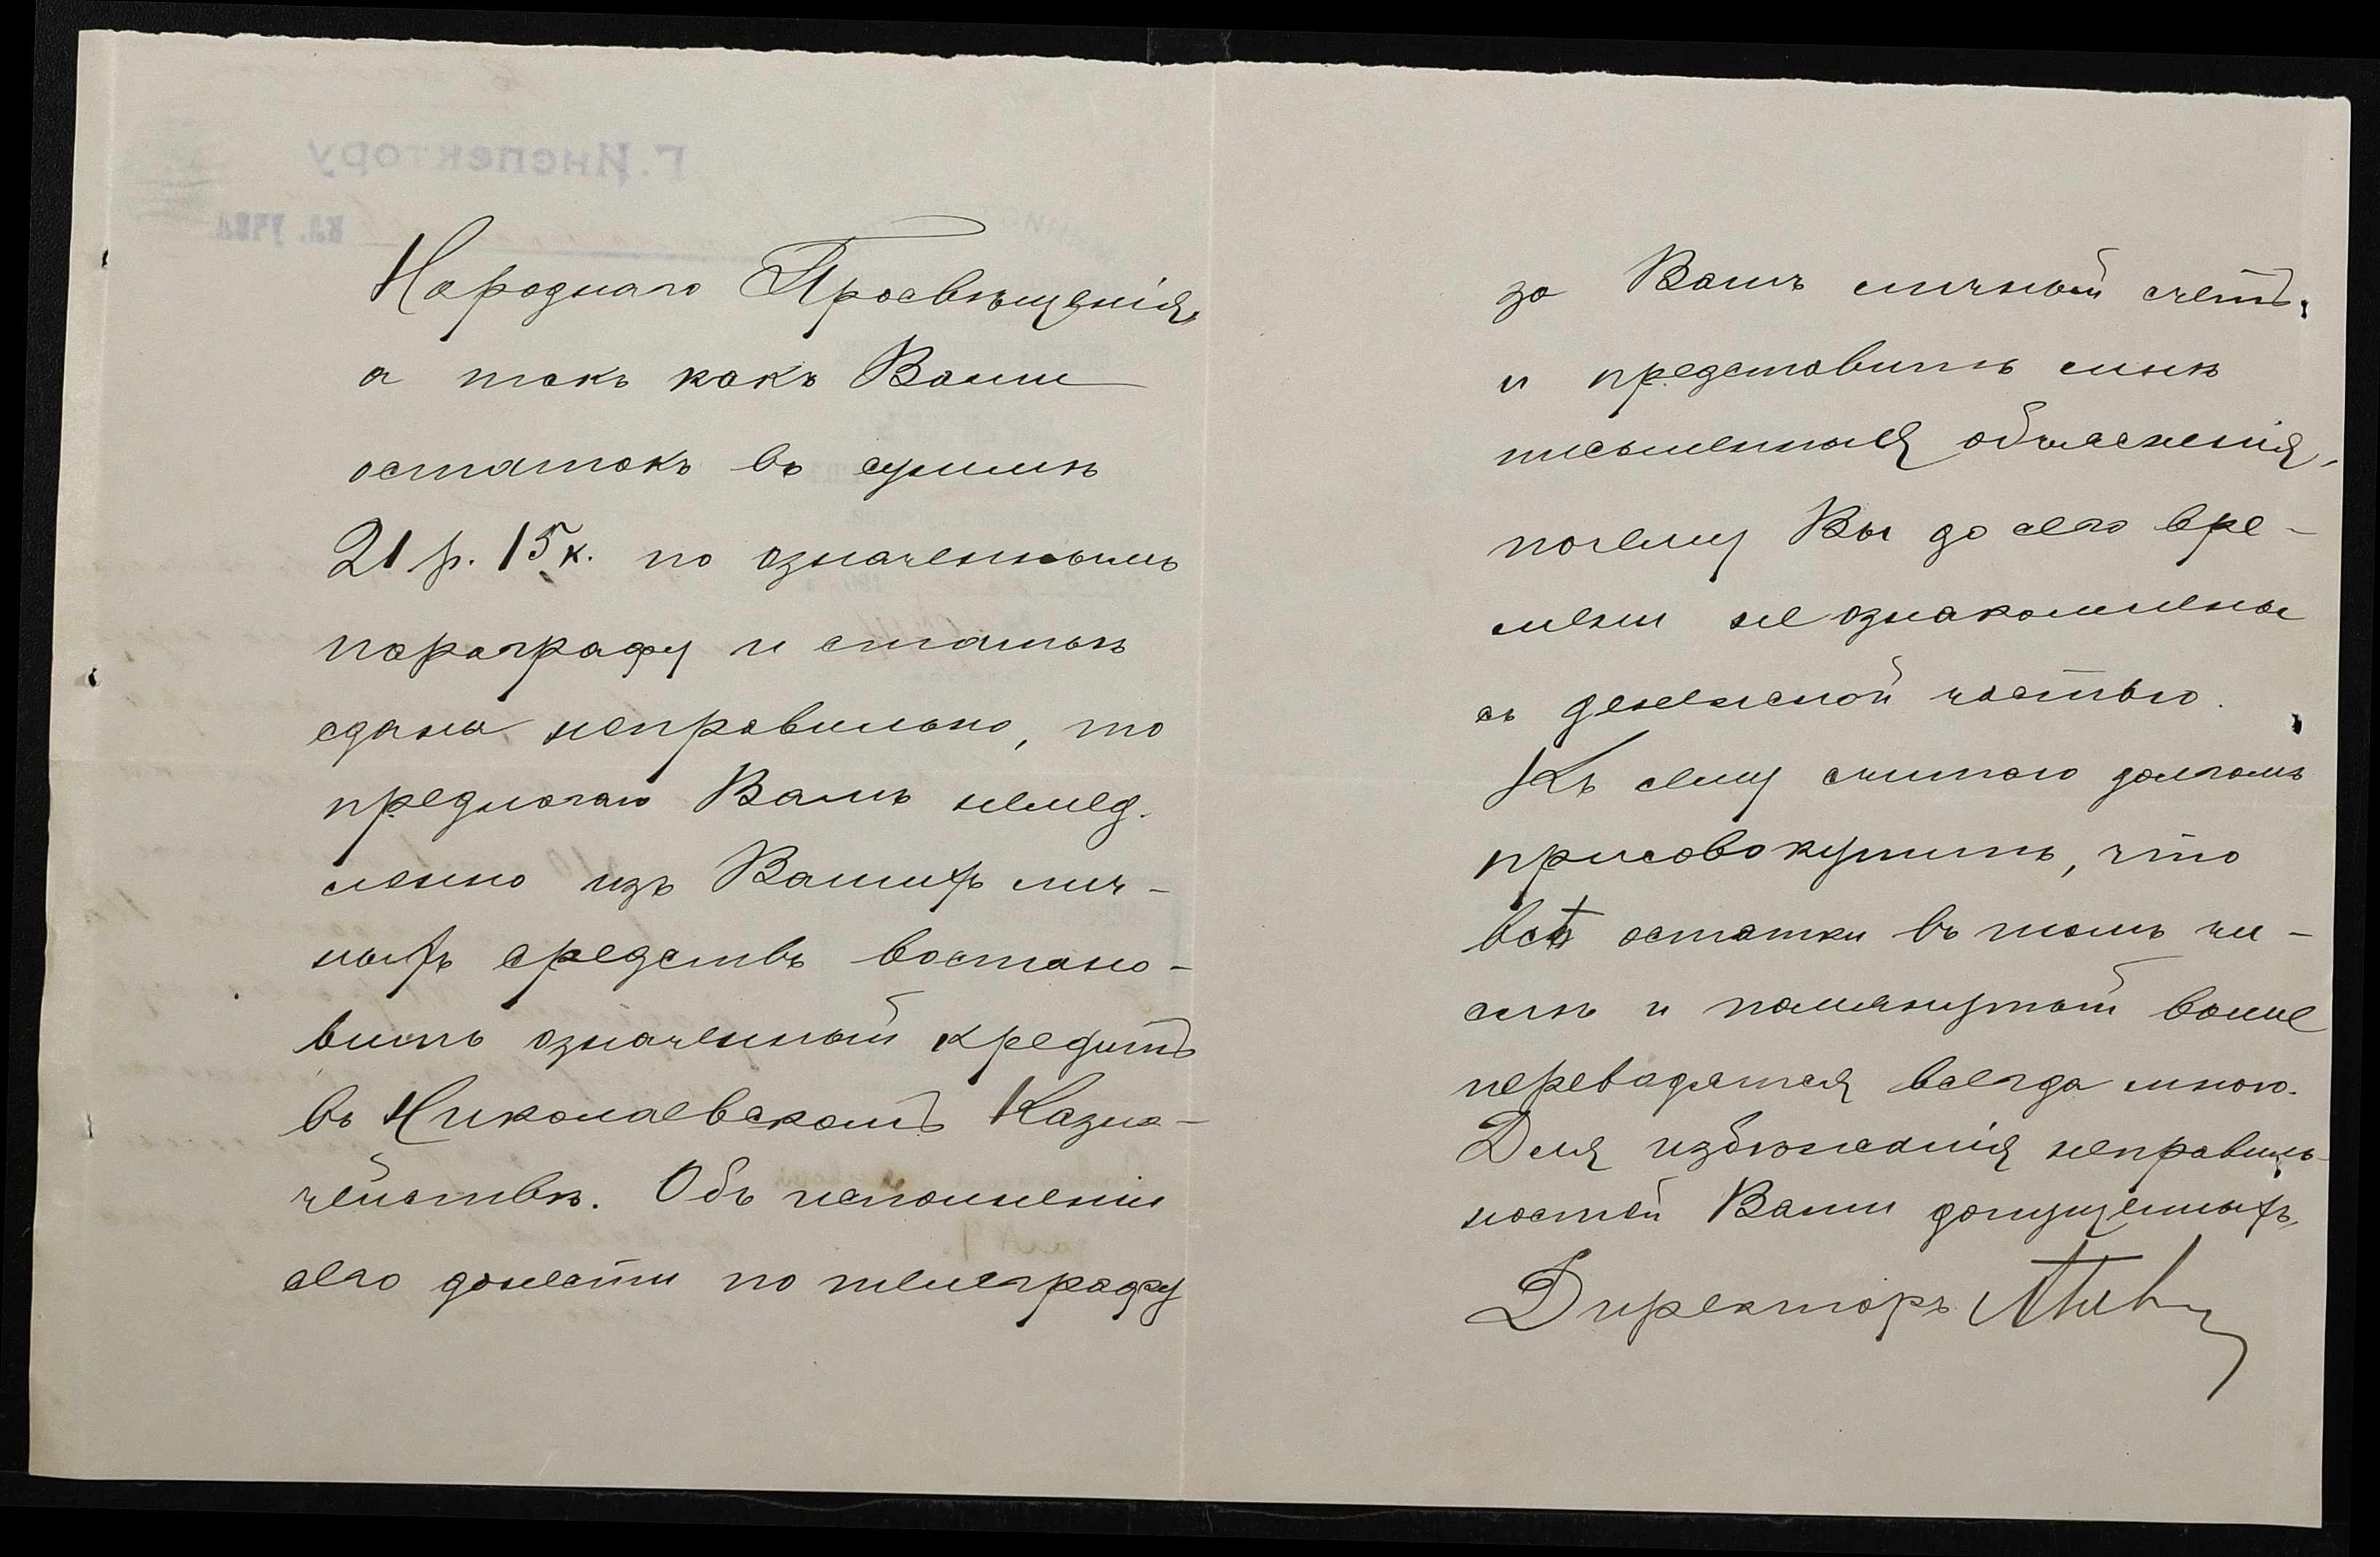 Народнаго Просвѣщенія,
а такъ какъ Вами
остатокъ въ суммѣ
21 р. 15 к. по означеннымъ
параграфу и статьѣ
сданы неправильно, то
предлагаю Вамъ немед.
ленно изъ Вашихъ лич-
ныхъ средствъ востано-
вить означенный кредитъ
въ Николаевскомъ Казна-
чействѣ. Объ исполненіи
сего донести по телеграфу
за Вашъ личный счетъ,
и представить мнѣ
письменныя объясненія,
почему Вы до сего вре-
мени не ознакомлены
съ денежной частью.
Къ сему считаю долгомъ
присовокупить, что
всѣ остатки въ томъ чи-
слѣ и помянутый выше
переводятся всегда мною.
Для избѣжанія неправиль-
ностей Вами допущенныхъ.
Директоръ
Г. Инспектору